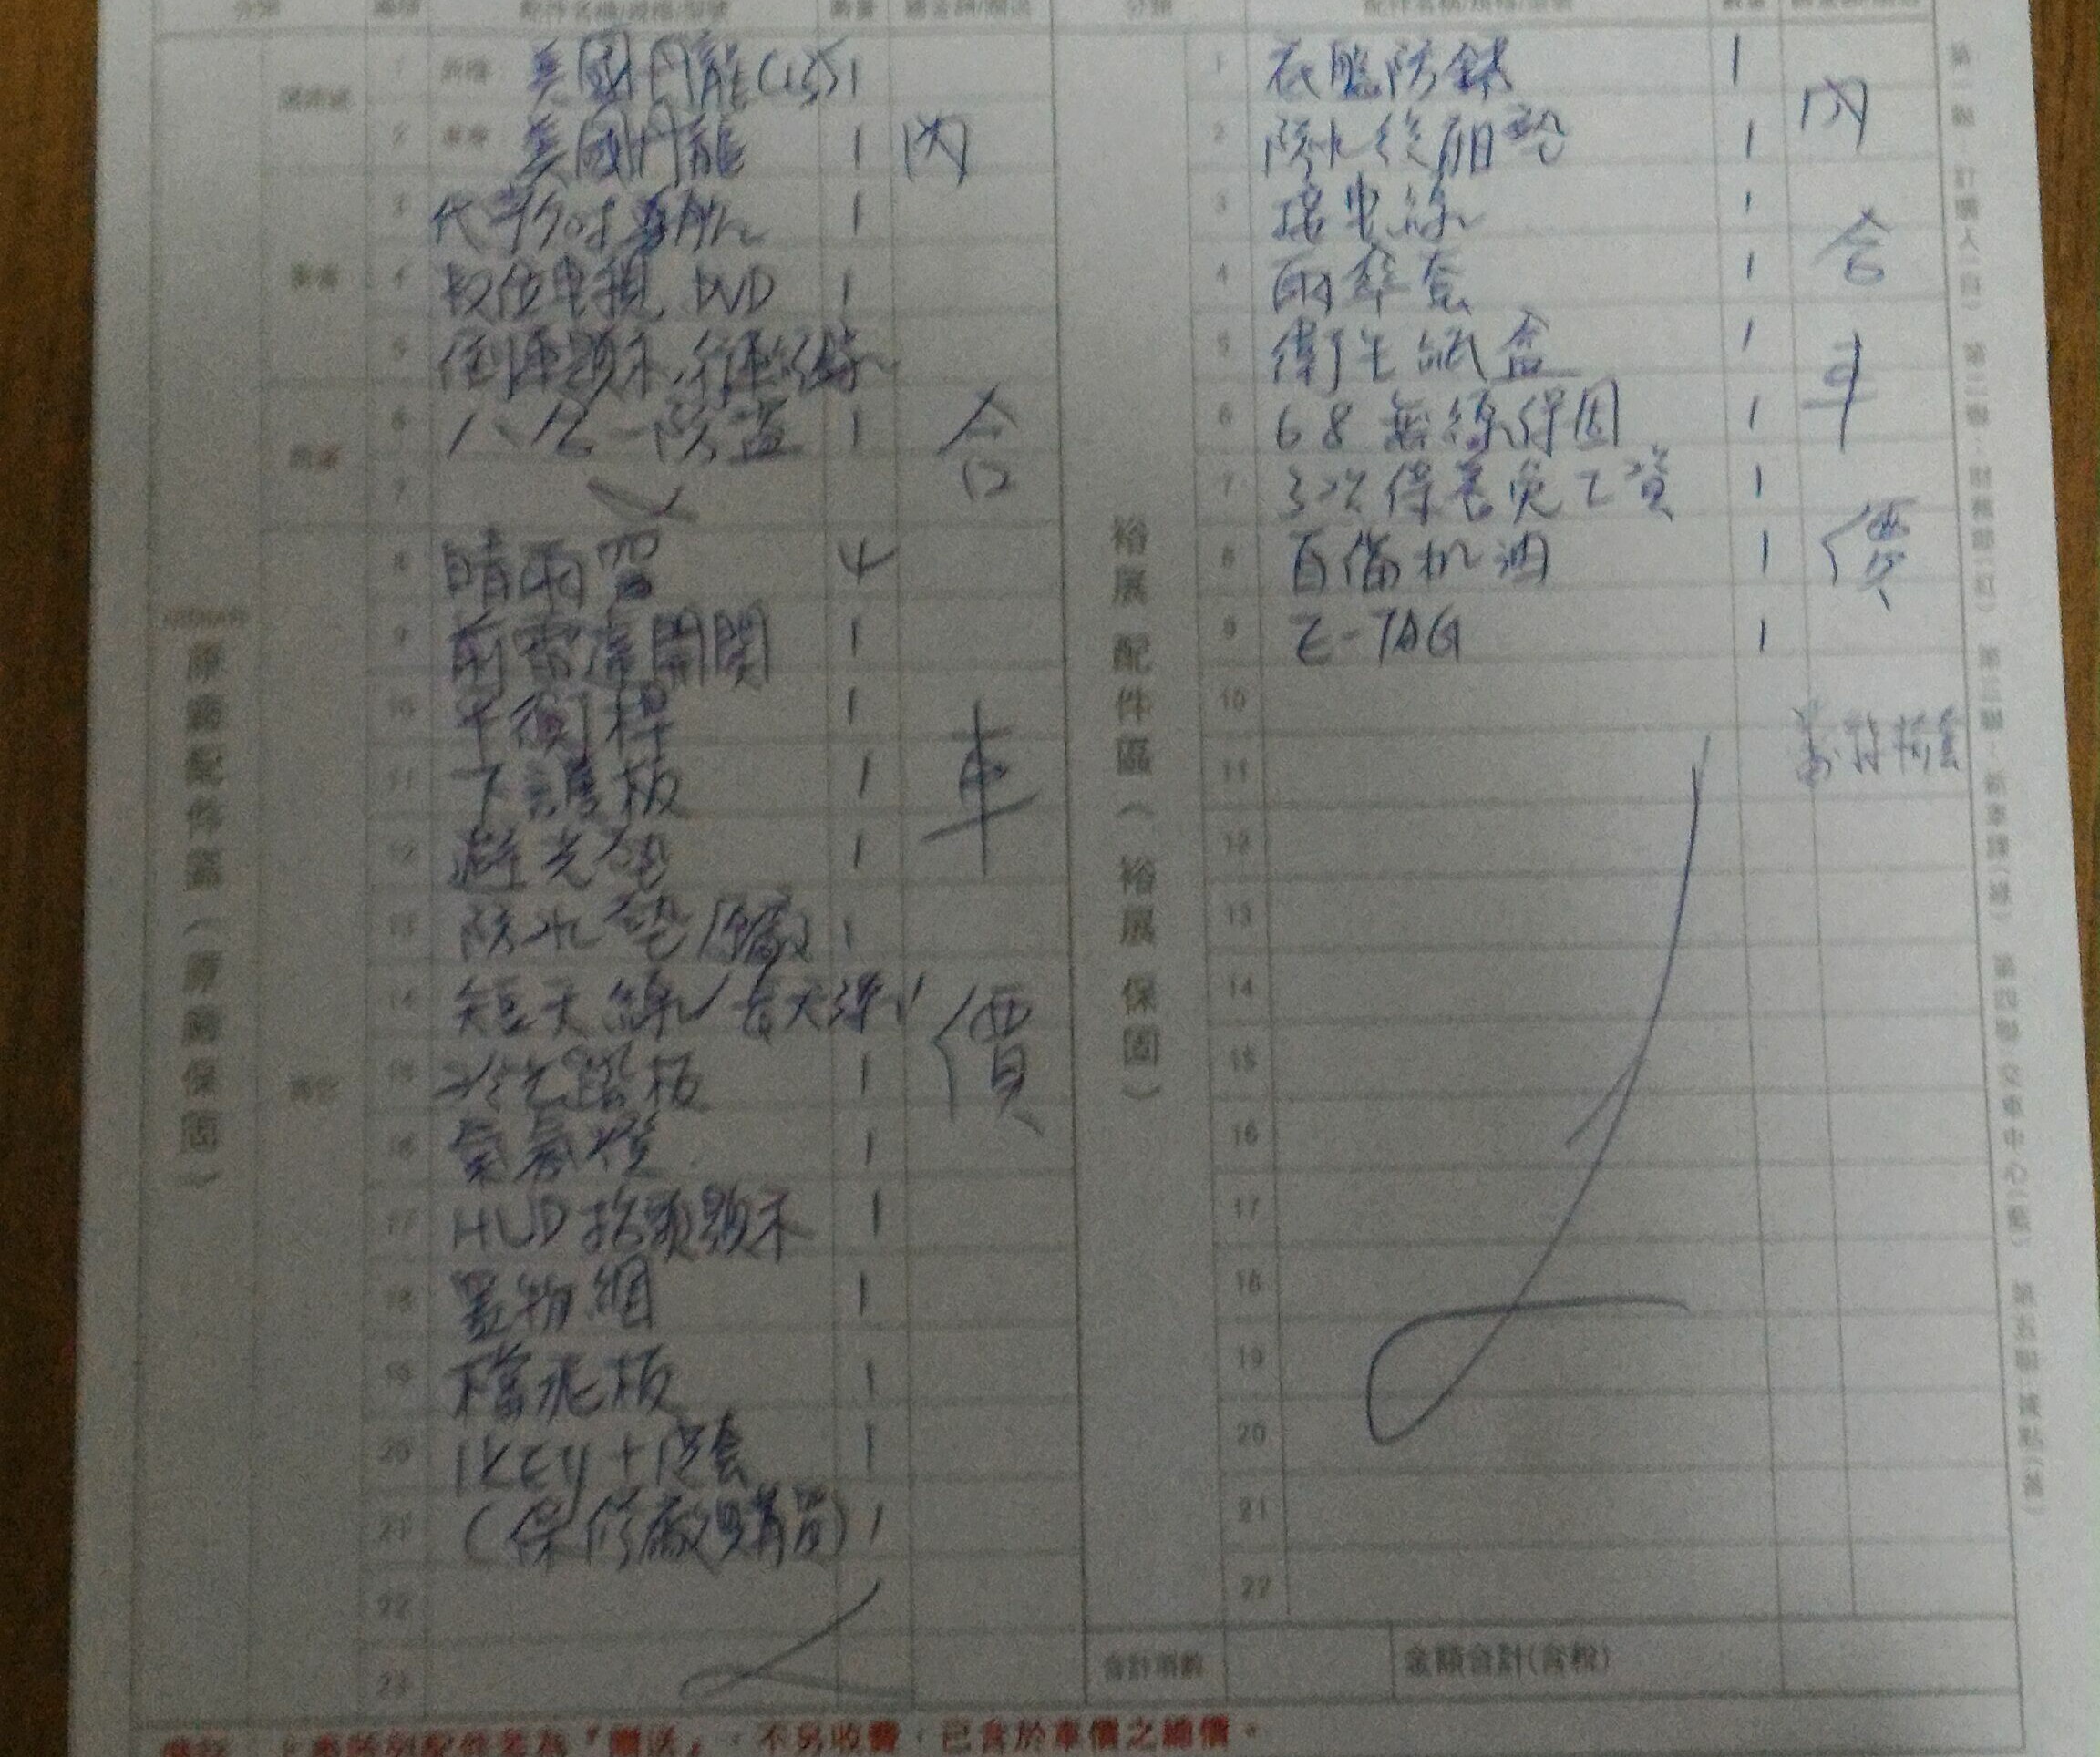 分類 編號 配件名稱/規格/型號 數量
分類 配件名稱/規格/型號 數量
隔熱紙
1 前檔 美國丹龍 1
2 車身 美國丹龍 1 內
3 1
4 數位電視 DVD 1
影音
5 倒車顯示,行車
6 八合一防盜 1 合
7
8 晴雨窗 4
9 1
10 平衡桿 1
11 下護板 1 車
12 避光墊 1
13 防水墊 原廠 1
14 短天線 長天線
15 冷光踏板 1 價
其它
16 氣氛燈 1
17 HUD抬頭顯示 1
18 置物網 1
19 檔泥板 1
20 IKEY+皮套 1
21 (保修廠購買) 1
22
23
原廠配件區(原廠保固)
1 底盤防銹 1 內
2 防水後廂墊 1
3 1
4 雨傘套 1 含
5 衛生紙盒 1
6 68無線保固 1 車
7 3次保養免工資 1
8 1 價
9 E-TAG 1
10
11
12
13
14
15
16
17
18
19
20
21
22
裕展配件區(裕展保固)
合計項數 金額合計(含稅)
第一聯:訂購人(白) 第二聯:財務部(紅) 第三聯:新車課(綠) 第四聯:交車中心(藍) 第五聯:據點(黃)
為『贈送』,不另收費,已含於車價之總價。